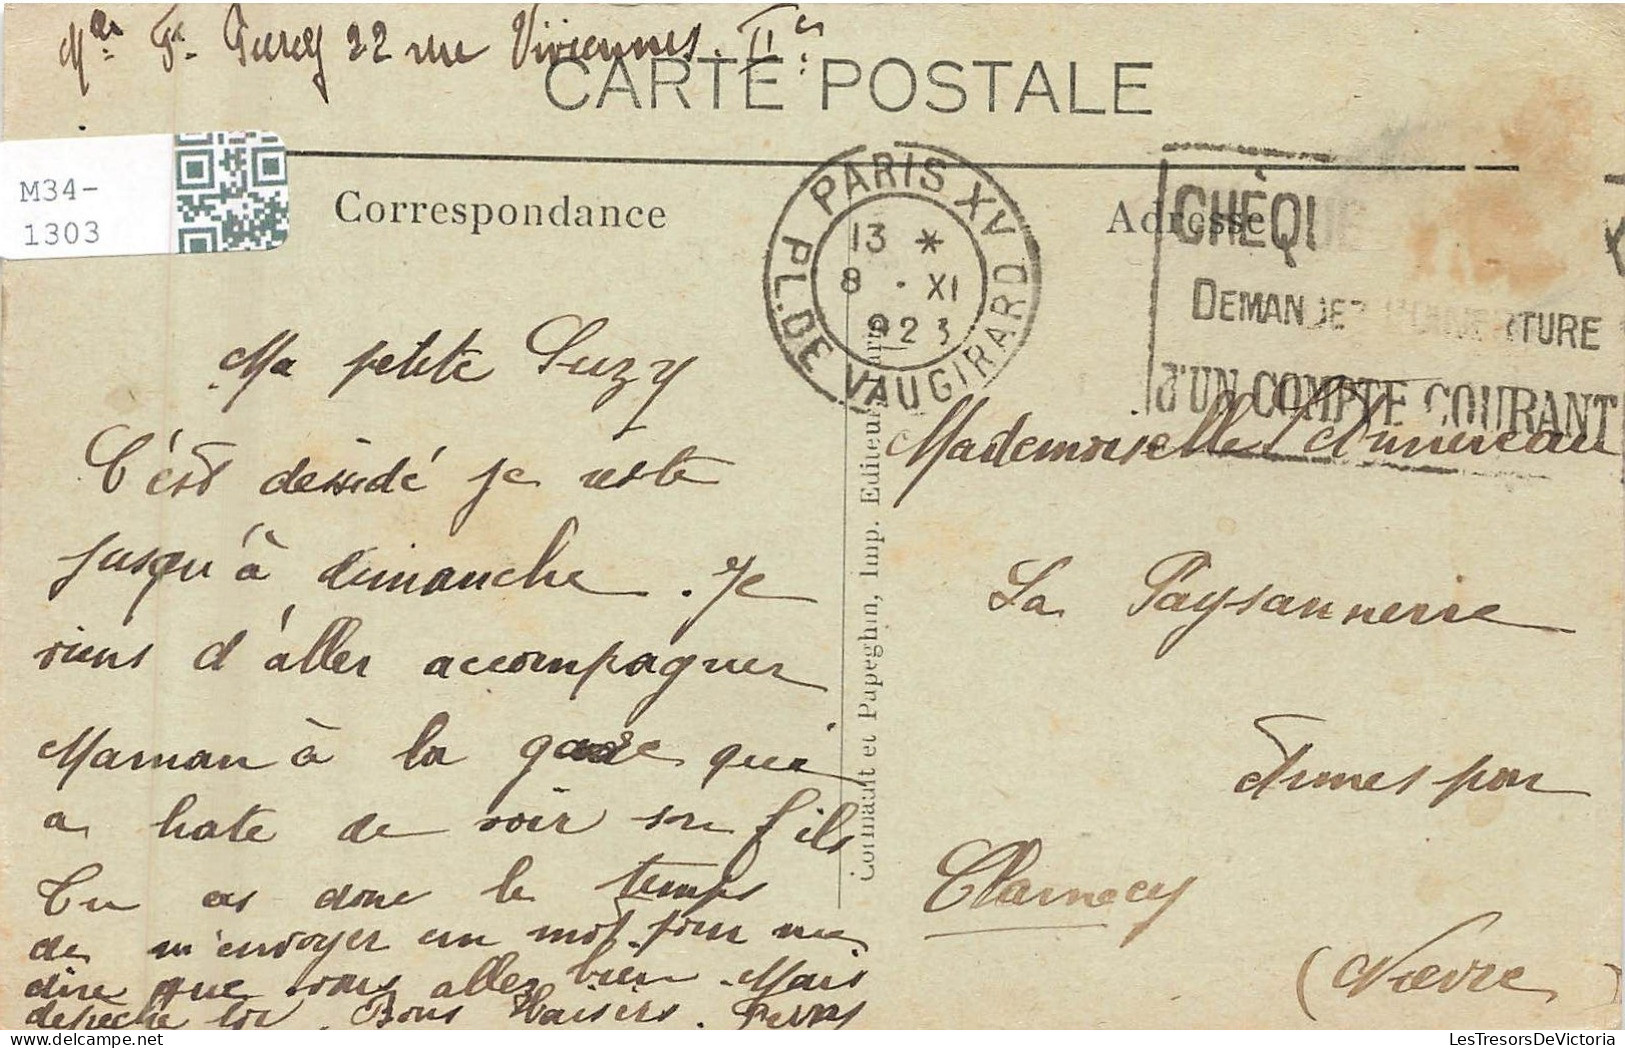 22 rue Viviennes. II
CARTE POSTALE
M34-
1303
Correspondance
Adresse
PARIS XV
PL. DE VAUGIRARD
13 *
8 · XI
923
CHÈQUE
DEMANDEZ L'OUVERTURE
d'UN COMPTE COURANT
Ma petite Suzy
C'est desidé je reste
jusqu'à dimanche. Je
viens d'aller accompagner
Maman à la gare qui
a hate de voir son fils
Tu as donc le temps
de m'envoyer un mot pour me
dire que vous allez bien. Mais
depeche toi. Bons Baisers.
Cormault et Papeghin, Imp. Editeur, Paris
Mademoiselle
La Paysannerie
Armes par
Clamecy
(Nievre)
LesTresorsDeVictoria